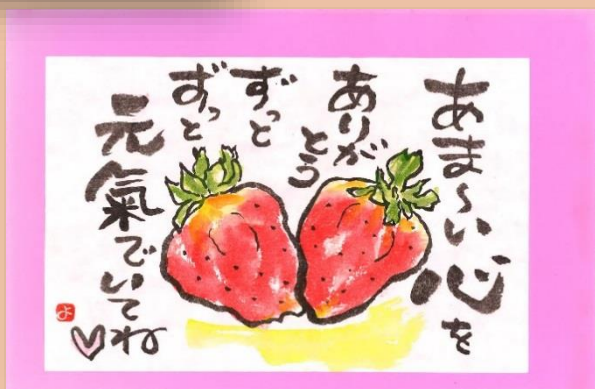 あま〜い心を
ありがとう
ずっと
ずっと
元氣でいてね
よ